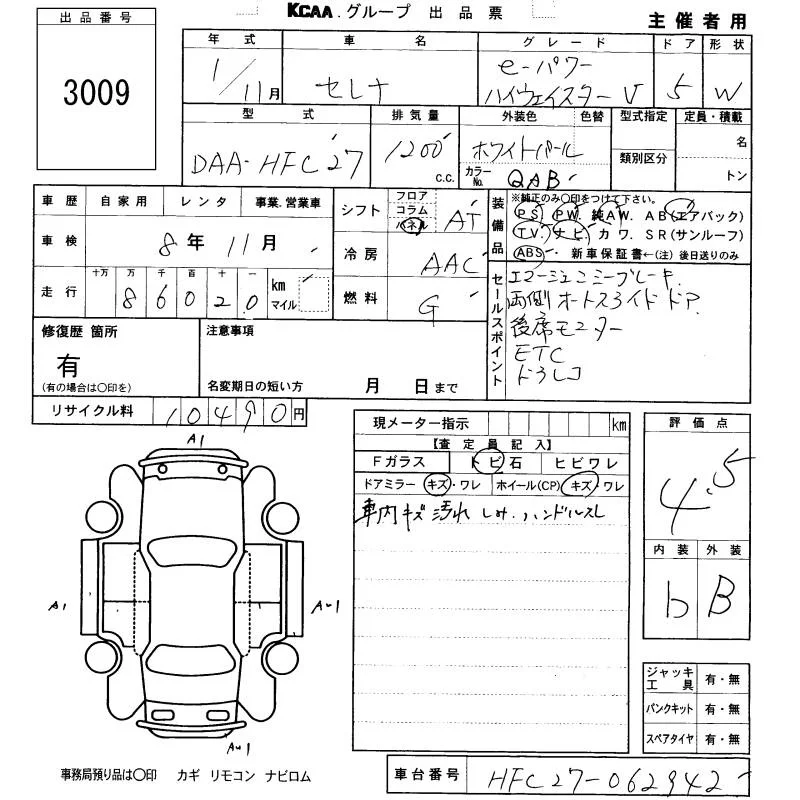 KCAA.グループ 出品票
主催者用
出品番号
3009
年式 車名 グレード ドア 形状
1/11月 セレナ e-パワー ハイウェイスターV 5 W
型式 排気量 外装色 色替 型式指定 定員・積載
DAA-HFC27 1200 c.c. ホワイトパール
カラーNo. QAB
類別区分
名
トン
車歴 自家用 レンタ 事業.営業車
車検 8年 11月
走行 十万 万 千 百 十 一 km マイル
8 6 0 2 0
シフト フロア コラム パネル AT
冷房 AAC
燃料 G
装備品
※純正のみ〇印をつけて下さい。
PS PW. 純AW. AB(エアバック)
T.V. ナビ. カワ. SR(サンルーフ)
ABS 新車保証書←(注)後日送りのみ
セールスポイント
エマージェンシーブレーキ
両側オートスライドドア
後席モニター
ETC
ドラレコ
修復歴 箇所
有
(有の場合は〇印を)
注意事項
名変期日の短い方 月 日まで
リサイクル料 10490円
現メーター指示 km
【査定員記入】
Fガラス トビ石 ヒビワレ
ドアミラー キズ・ワレ ホイール(CP) キズ・ワレ
車内キズ 汚れ しみ. ハンドルスレ
評価点
4.5
内装 外装
b B
A1
A1
AU1
AU1
ジャッキ工具 有・無
パンクキット 有・無
スペアタイヤ 有・無
事務局預り品は〇印 カギ リモコン ナビロム
車台番号 HFC27-062942